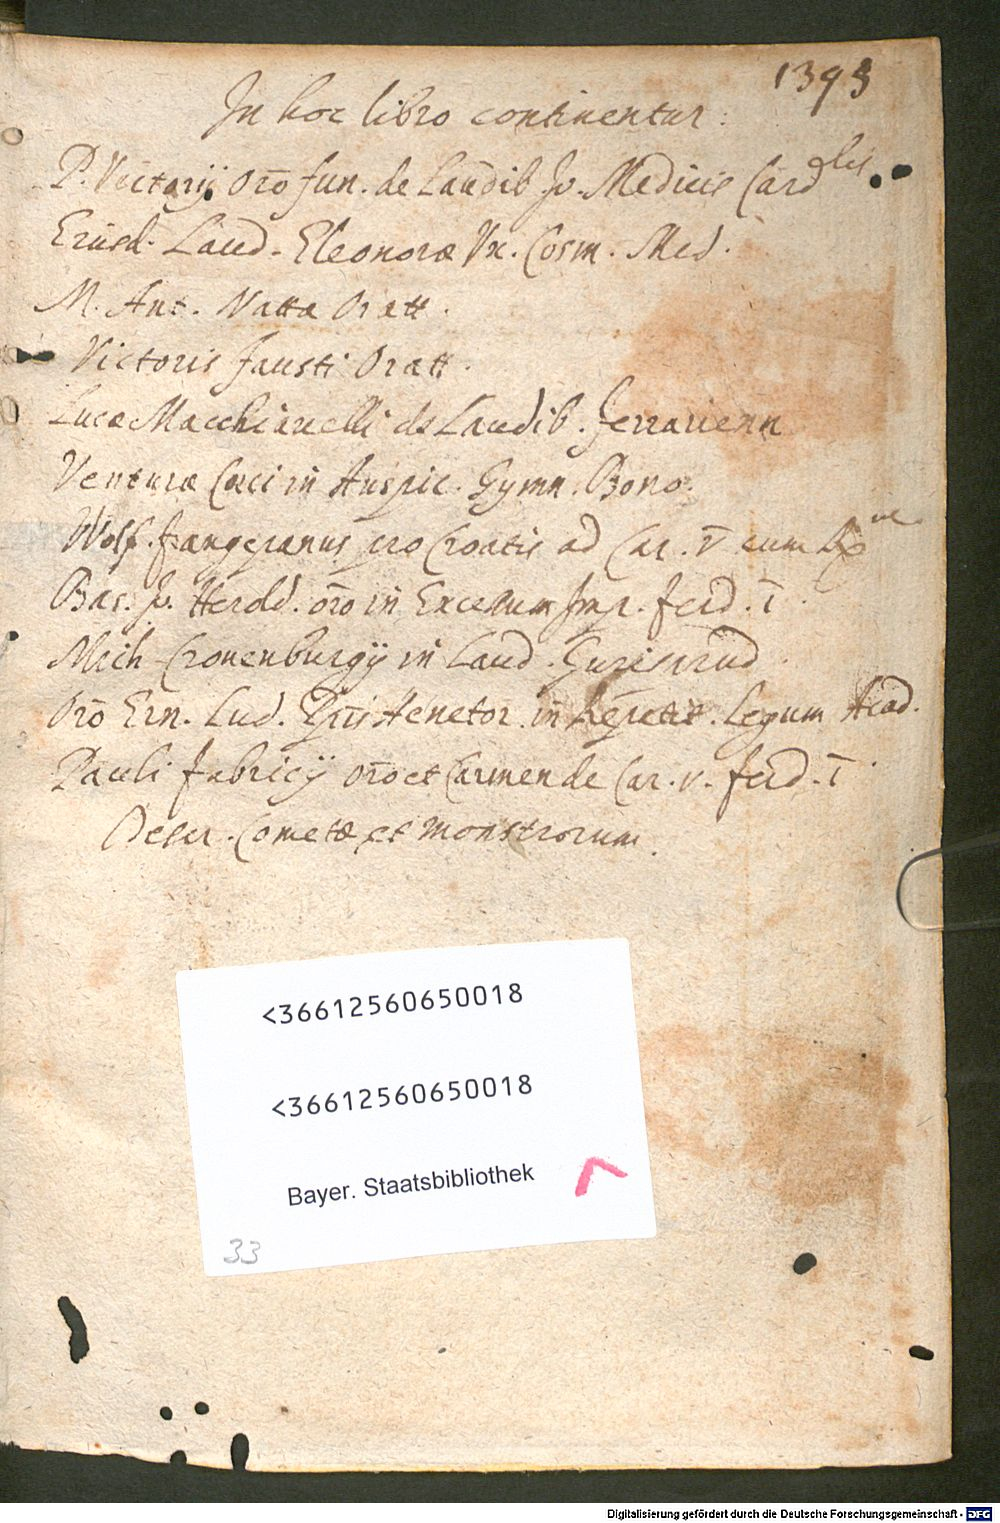 1393
In hoc libro continentur:
P. Victorij orõ fun. de Laudib Jo. Medicis Card lis.
Eiusd. Laud. Eleonoræ Vx. Cosm. Med.
M. Ant. Natta Oratt.
Victoris Fausti Oratt.
Lucæ Macchiauelli de Laudib. Ferrarienn
Venturæ Cæci in Auspic. Gymn. Bono.
Wolf. Frangepanus pro Croatis ad Car. V cum
Bas. Jo. Herold. orõ in Excessum Imp. Ferd. I.
Mich Cronenburgij in Laud.
Orõ Ern. Lud. in Repetit. Legum Acad.
Pauli Fabricij orõ et Carmen de Car. V. Ferd. I.
Descr. Cometæ et monstrorum.
<36612560650018
<36612560650018
Bayer. Staatsbibliothek
33
Digitalisierung gefördert durch die Deutsche Forschungsgemeinschaft - DFG